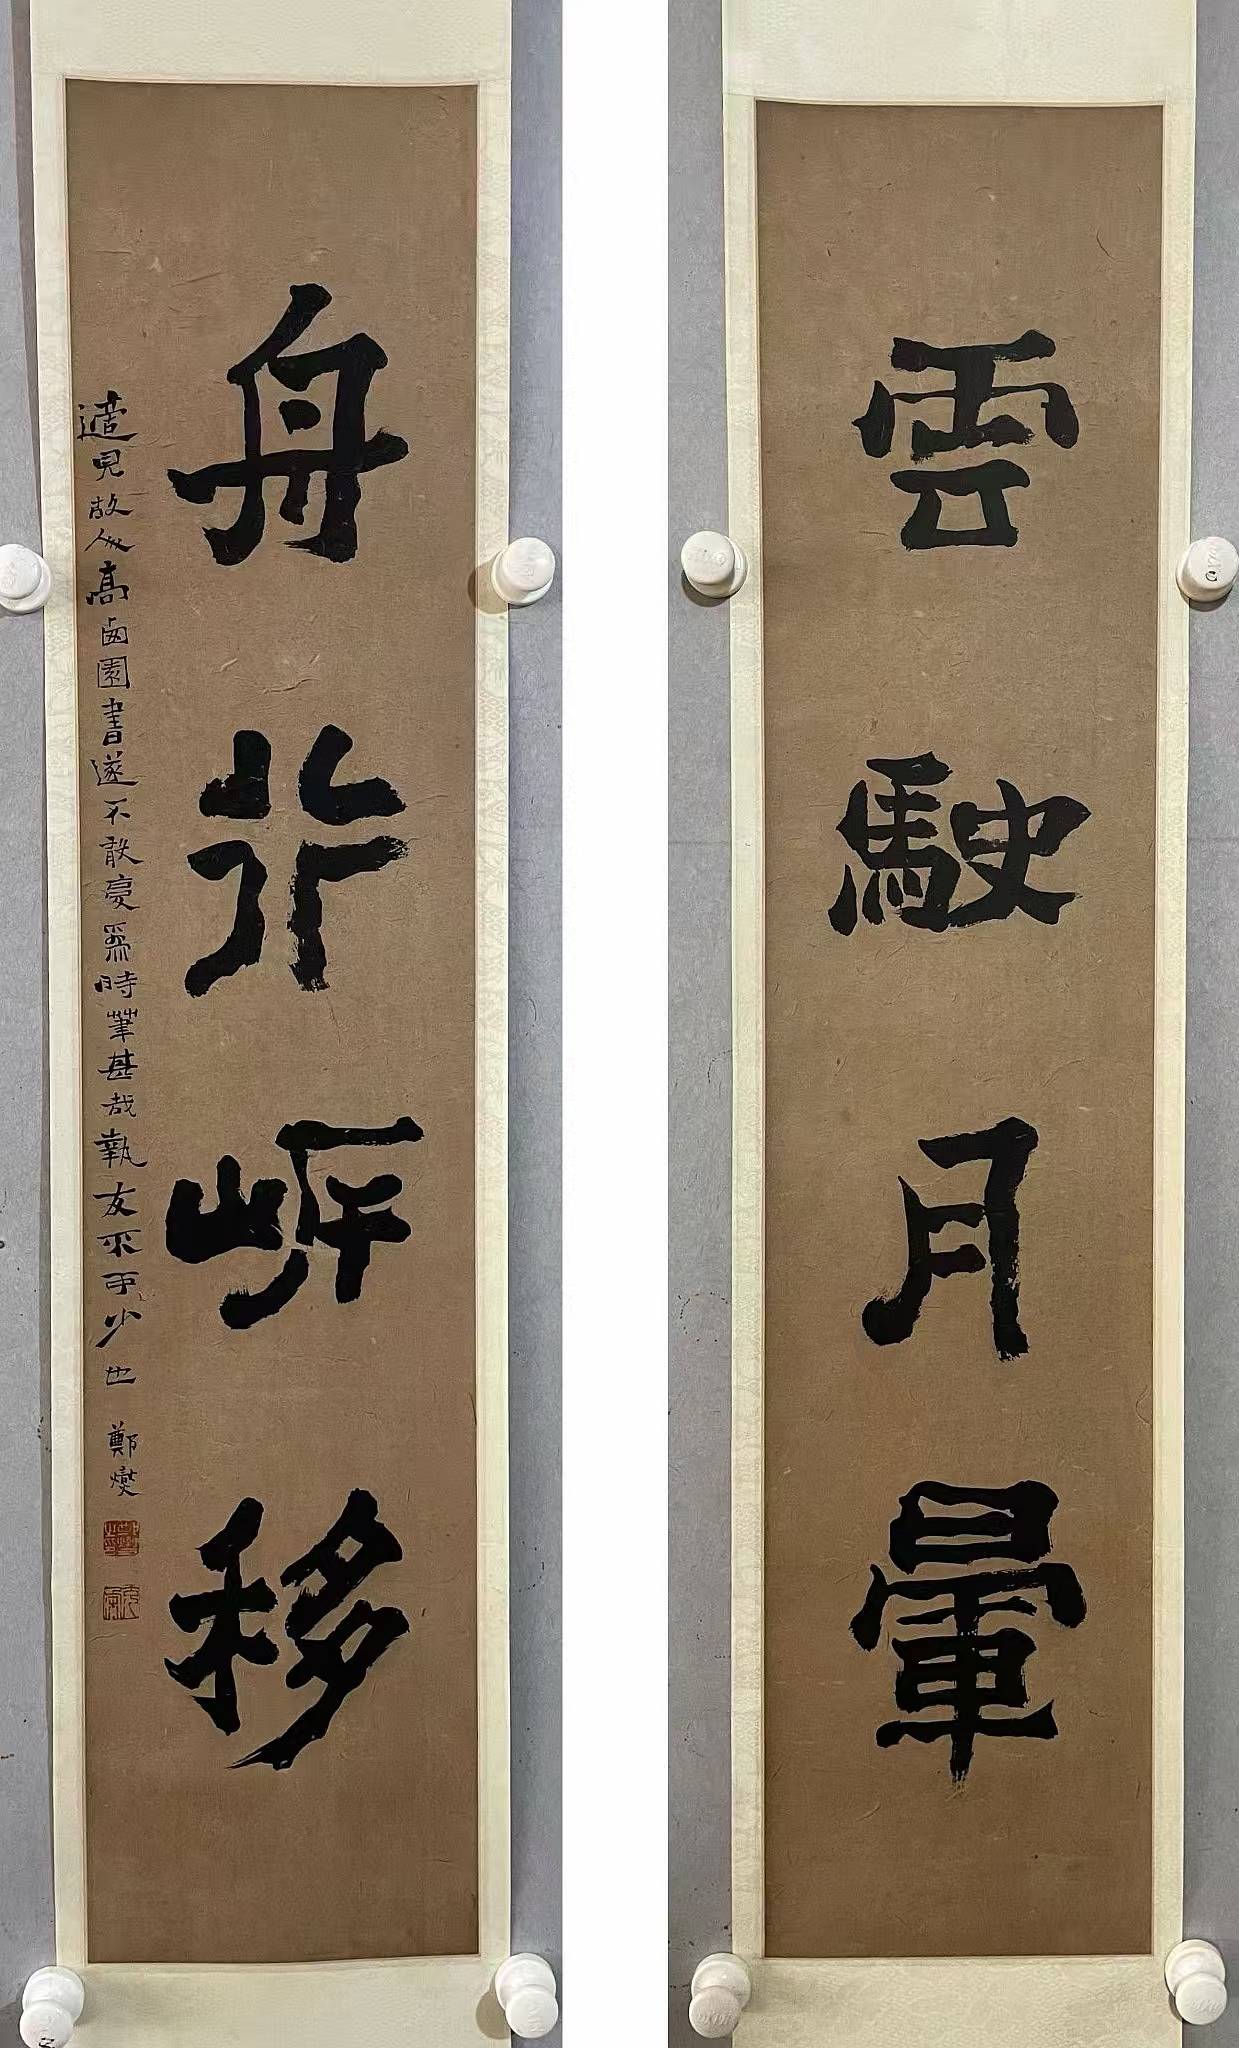 雲駛月暈
舟行岸移
適見故人高西園書遂不敢為時筆甚哉執友不可少也 鄭燮